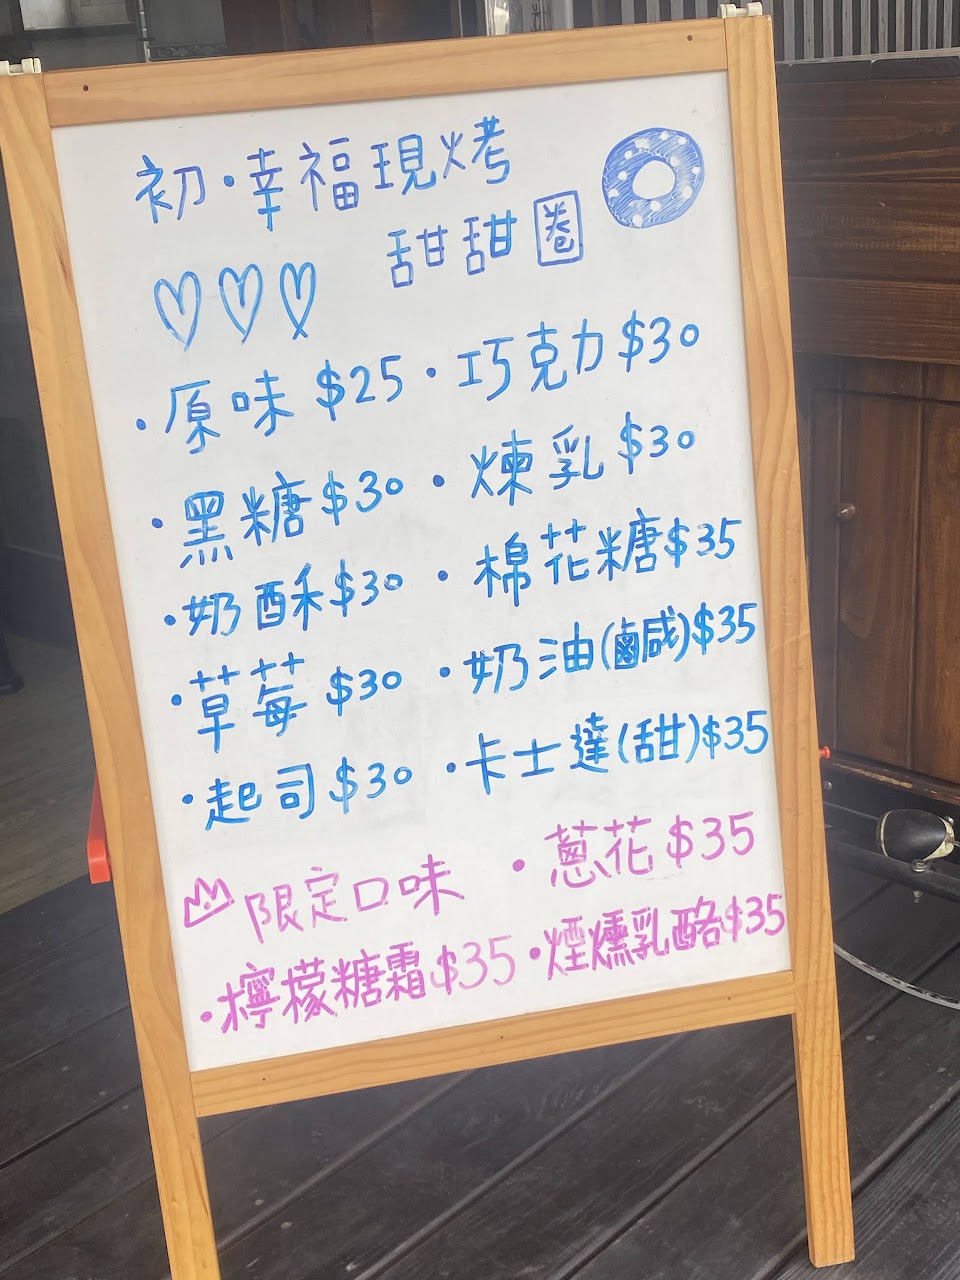 初·幸福現烤
甜甜圈
·原味$25 ·巧克力$30
·黑糖$30 ·煉乳$30
·奶酥$30 ·棉花糖$35
·草莓$30 ·奶油(鹹)$35
·起司$30 ·卡士達(甜)$35
限定口味 ·蔥花$35
·檸檬糖霜$35 ·煙燻乳酪$35